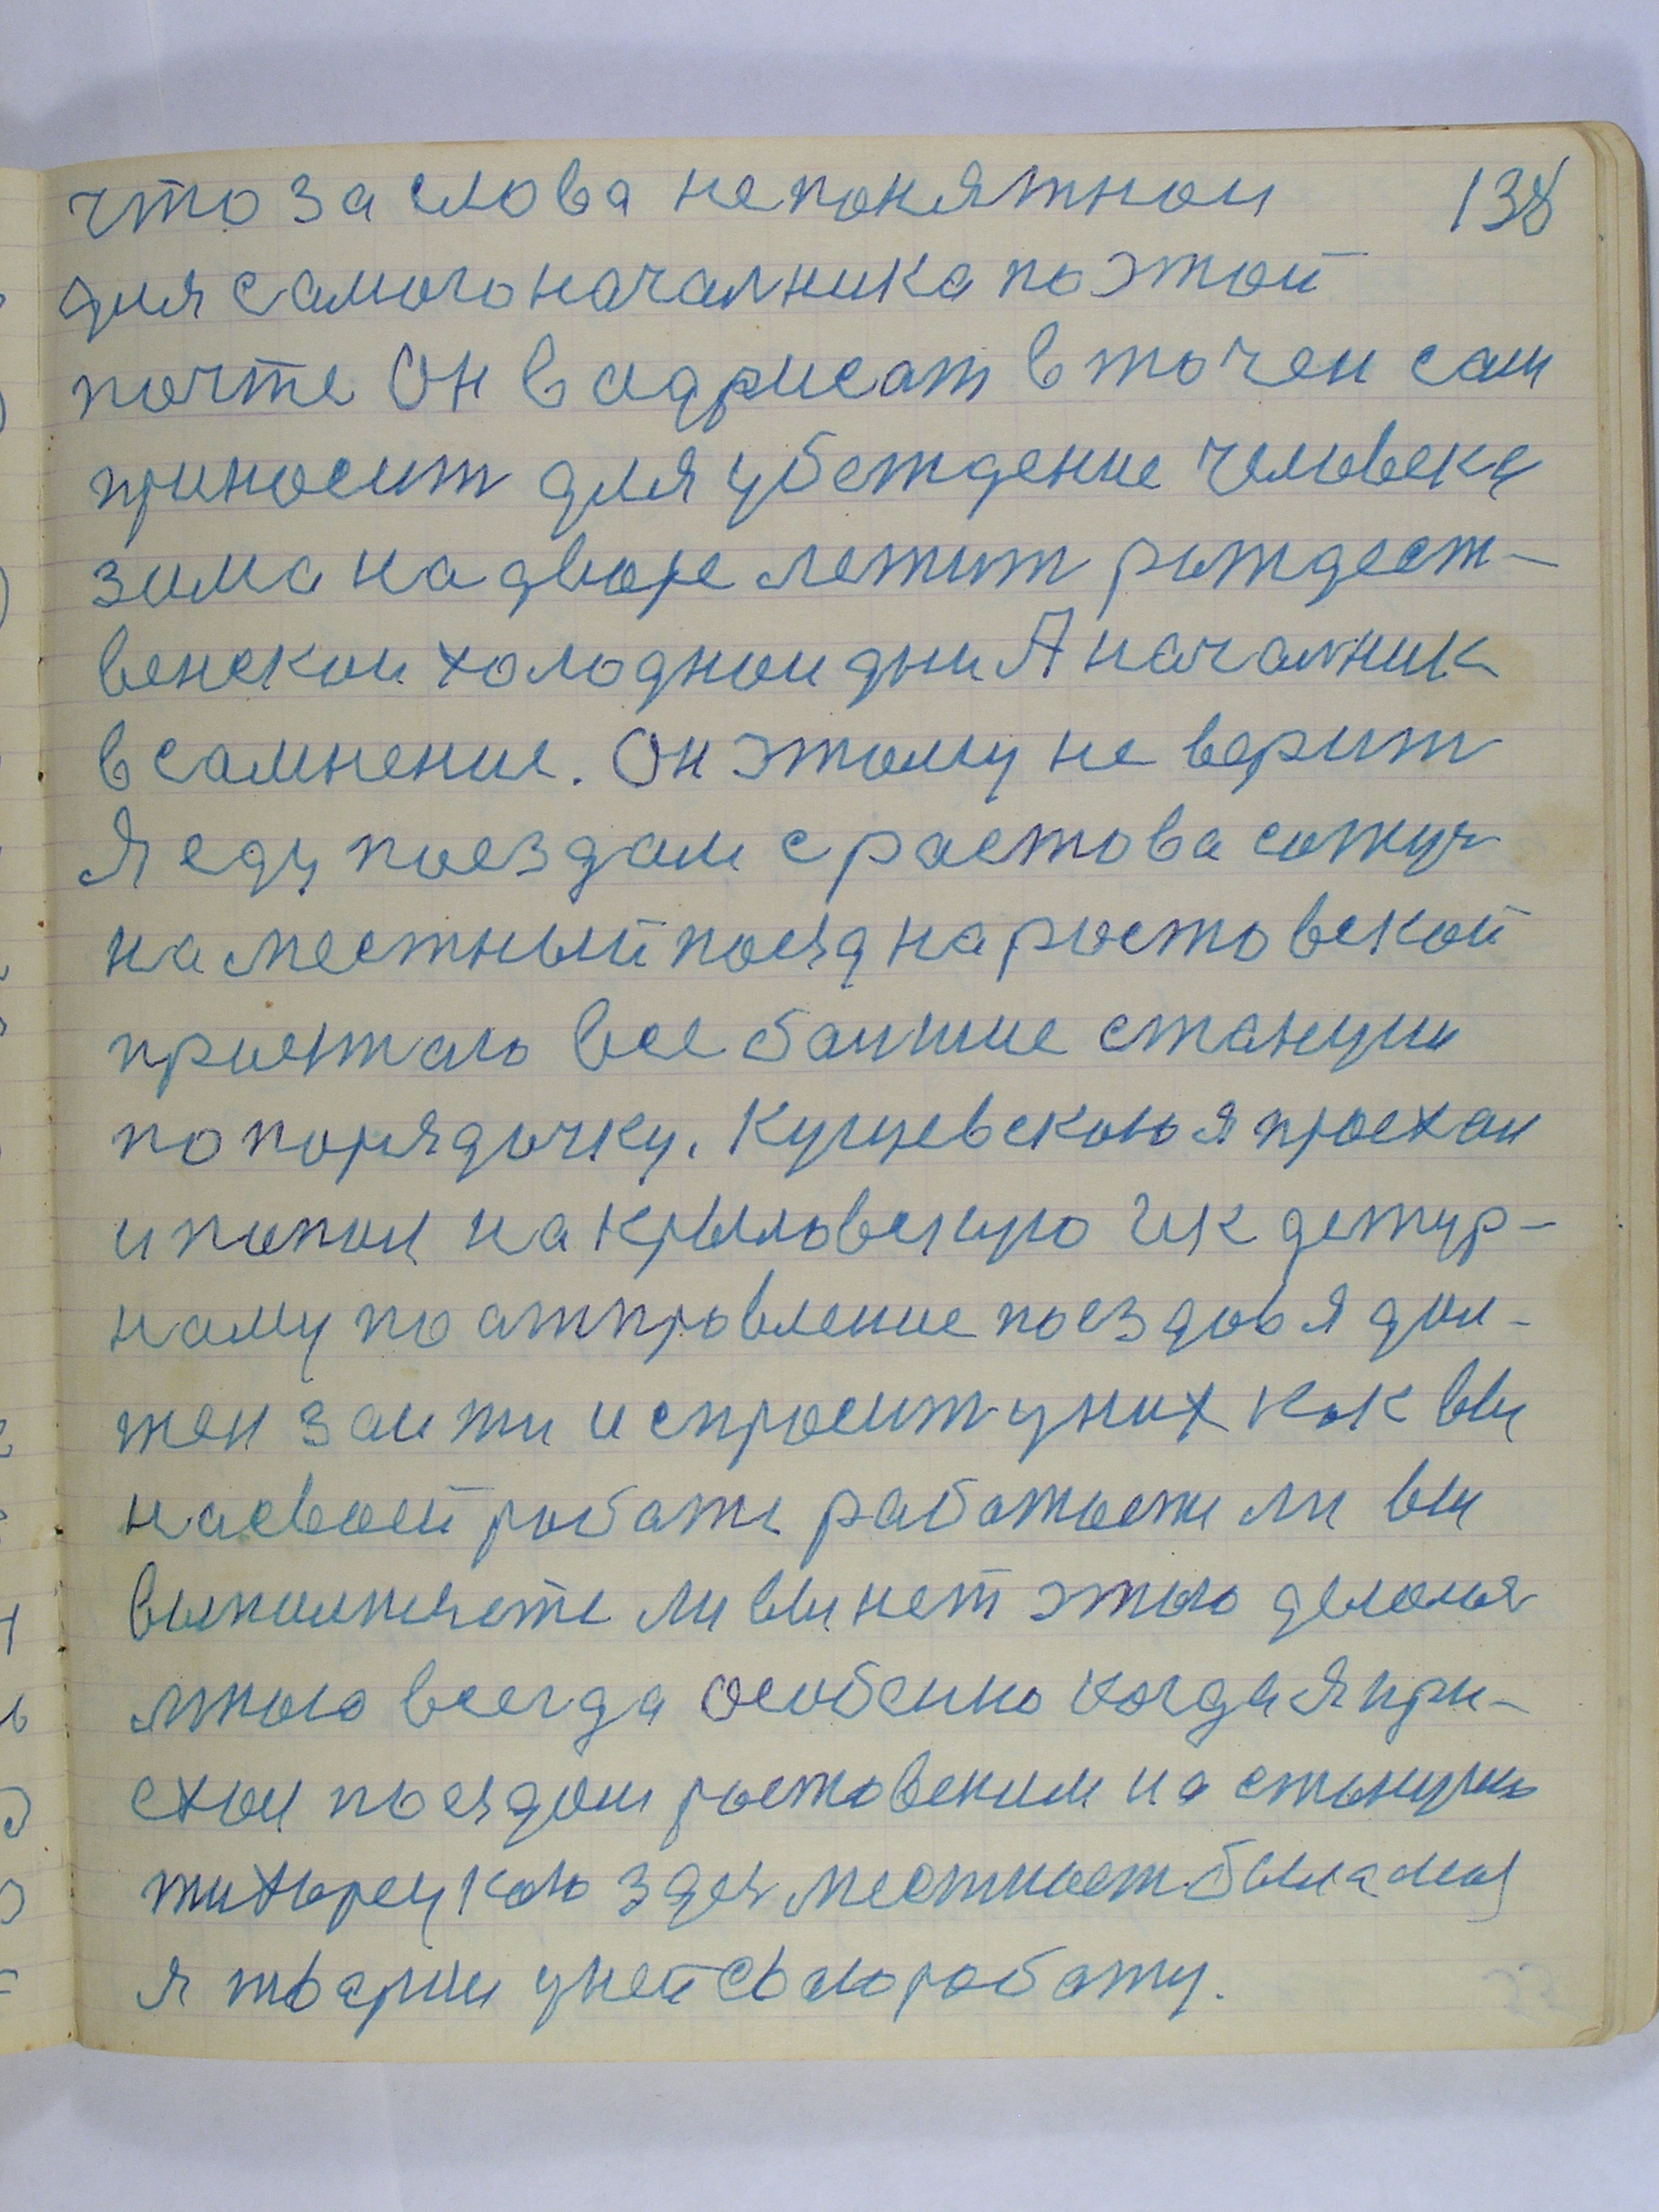 что за слова непонятнои 138
для самого началника по этой
почте Он в адрисат в точеи сам
приносит для убеждение человека
зима на дворе лежит рождест-
венскои холоднои дни А началник
в самнение. Он этому не верит
Я еду поездам с растова сажус
на местный поезд на ростовской
приежаю все бапшие станции
по порядочку. Кущевскою я проехал
и попал на крыловскую Я к дежур-
наму по атправление поездов я дол-
жен заити и спросит у них как вы
на своей работе работаете ли вы
выполняете ли вы нет этаго делалья
этаго всегда Особенно когда я при-
ехал поездом ростовским на станцию
тихорецкою здес местност была моя
я творил у ней свою работу.